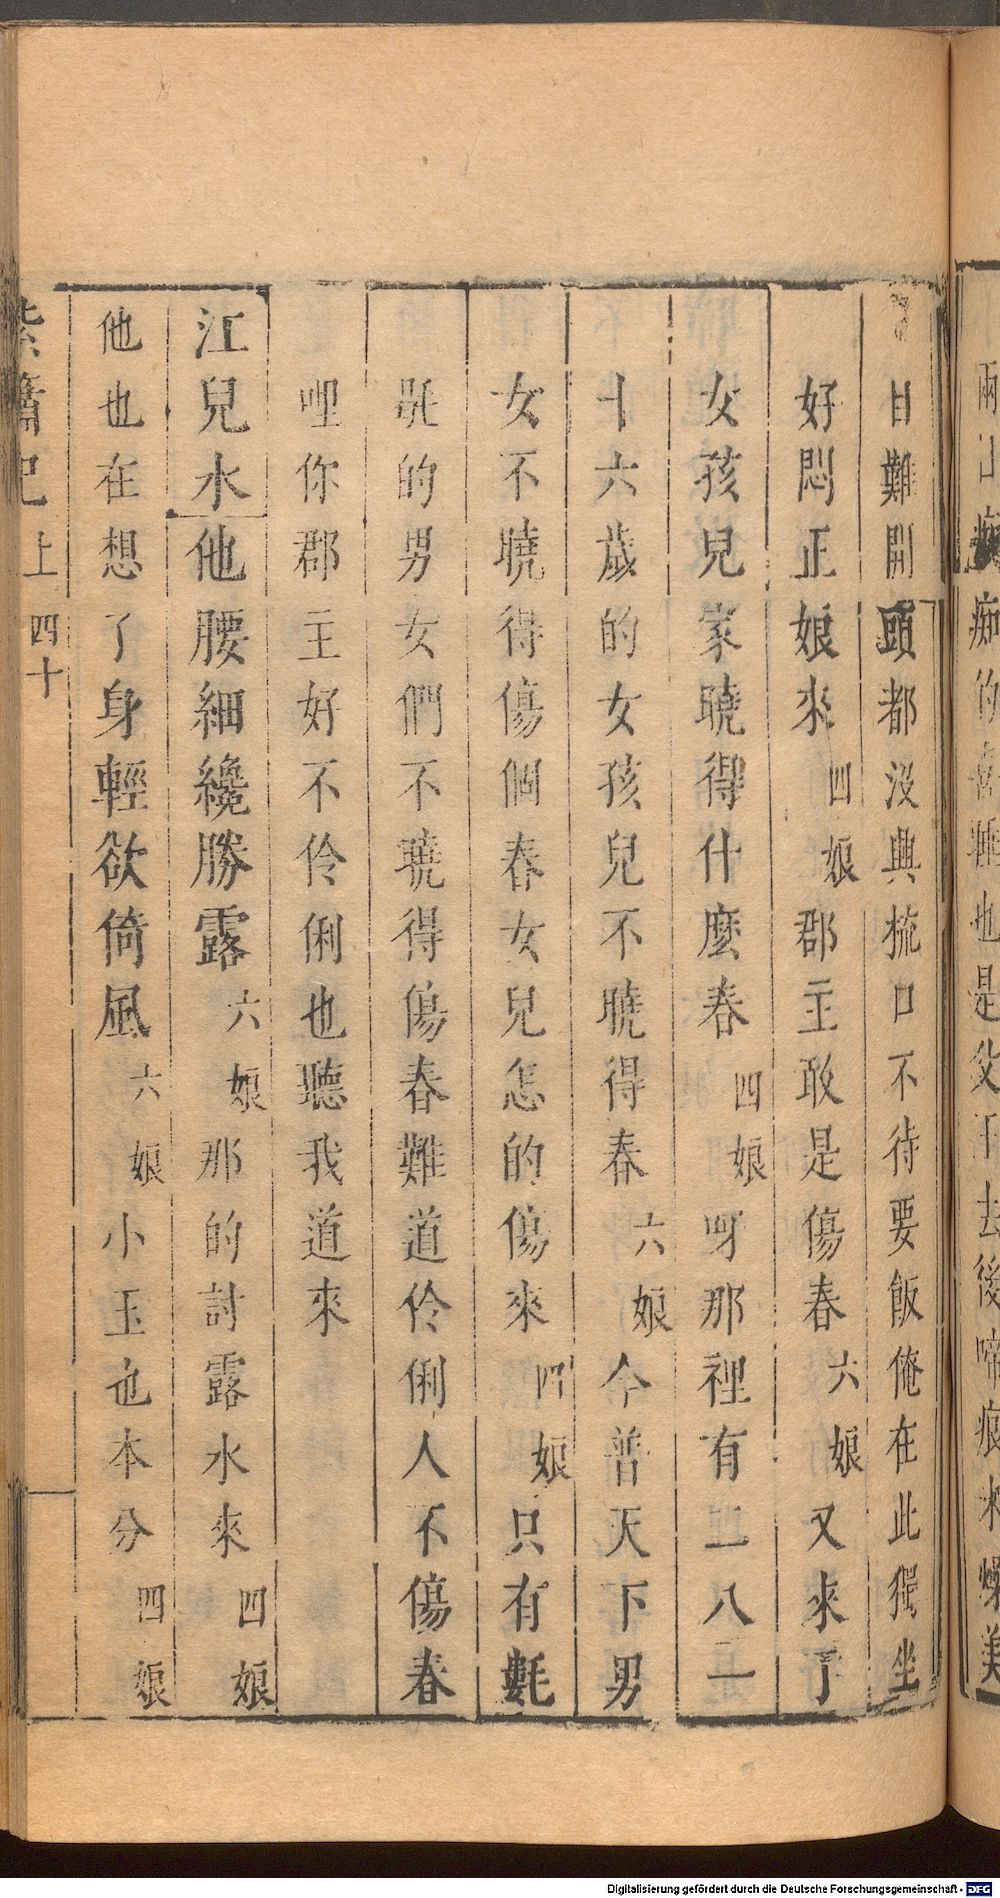 痴的喜睡也是父下去後啼痕
日難開頭都沒興梳口不待要飯俺在此獨坐
好悶正娘來四娘郡主敢是傷春六娘又來了
女孩兒家曉得什麼春四娘呀那裡有二八一
十六歲的女孩兒不曉得春六娘今普天下男
女不曉得傷個春女兒怎的傷來四娘只有
的男女們不曉得傷春難道伶俐人不傷春
哩你郡主好不伶俐也聽我道來
江兒水他腰細纔勝露六娘那的討露水來四娘
他也在想了身輕欲倚風六娘小玉也本分四娘
紫簫記 上 四十
Digitalisierung gefördert durch die Deutsche Forschungsgemeinschaft - DFG